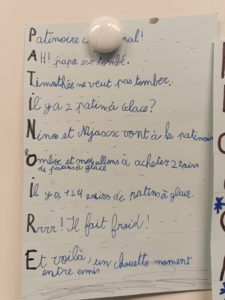 Patinoire c nal!
AH! papa est tombé.
Timothée ne veut pas tomber.
Il y a 2 patins à Glace?
Nino et vont à la patinoire
et allons à acheter 2
de patins à glace
Il y a 124 de patins à glace.
Rrrr! Il fait froid!
Et voilà, un chouette moment
entre amis